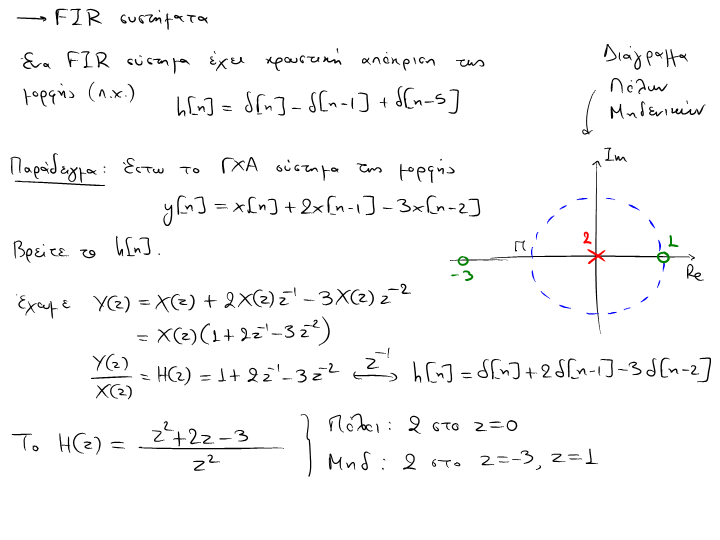 → FIR συστήματα
Ένα FIR σύστημα έχει κρουστική απόκριση της
μορφής (π.χ.)
h[n] = δ[n] - δ[n-1] + δ[n-5]
Διάγραμμα
Πόλων
Μηδενικών
Παράδειγμα: Έστω το ΓΧΑ σύστημα της μορφής
y[n] = x[n] + 2x[n-1] - 3x[n-2]
Βρείτε το h[n].
Im
2
1
-3
Re
Έχουμε Y(z) = X(z) + 2X(z)z⁻¹ - 3X(z)z⁻²
= X(z)(1 + 2z⁻¹ - 3z⁻²)
Y(z)/X(z) = H(z) = 1 + 2z⁻¹ - 3z⁻² ⟷ z⁻¹ h[n] = δ[n] + 2δ[n-1] - 3δ[n-2]
Το H(z) = (z² + 2z - 3)/z² } Πόλοι: 2 στο z=0
Μηδ: 2 στο z=-3, z=1